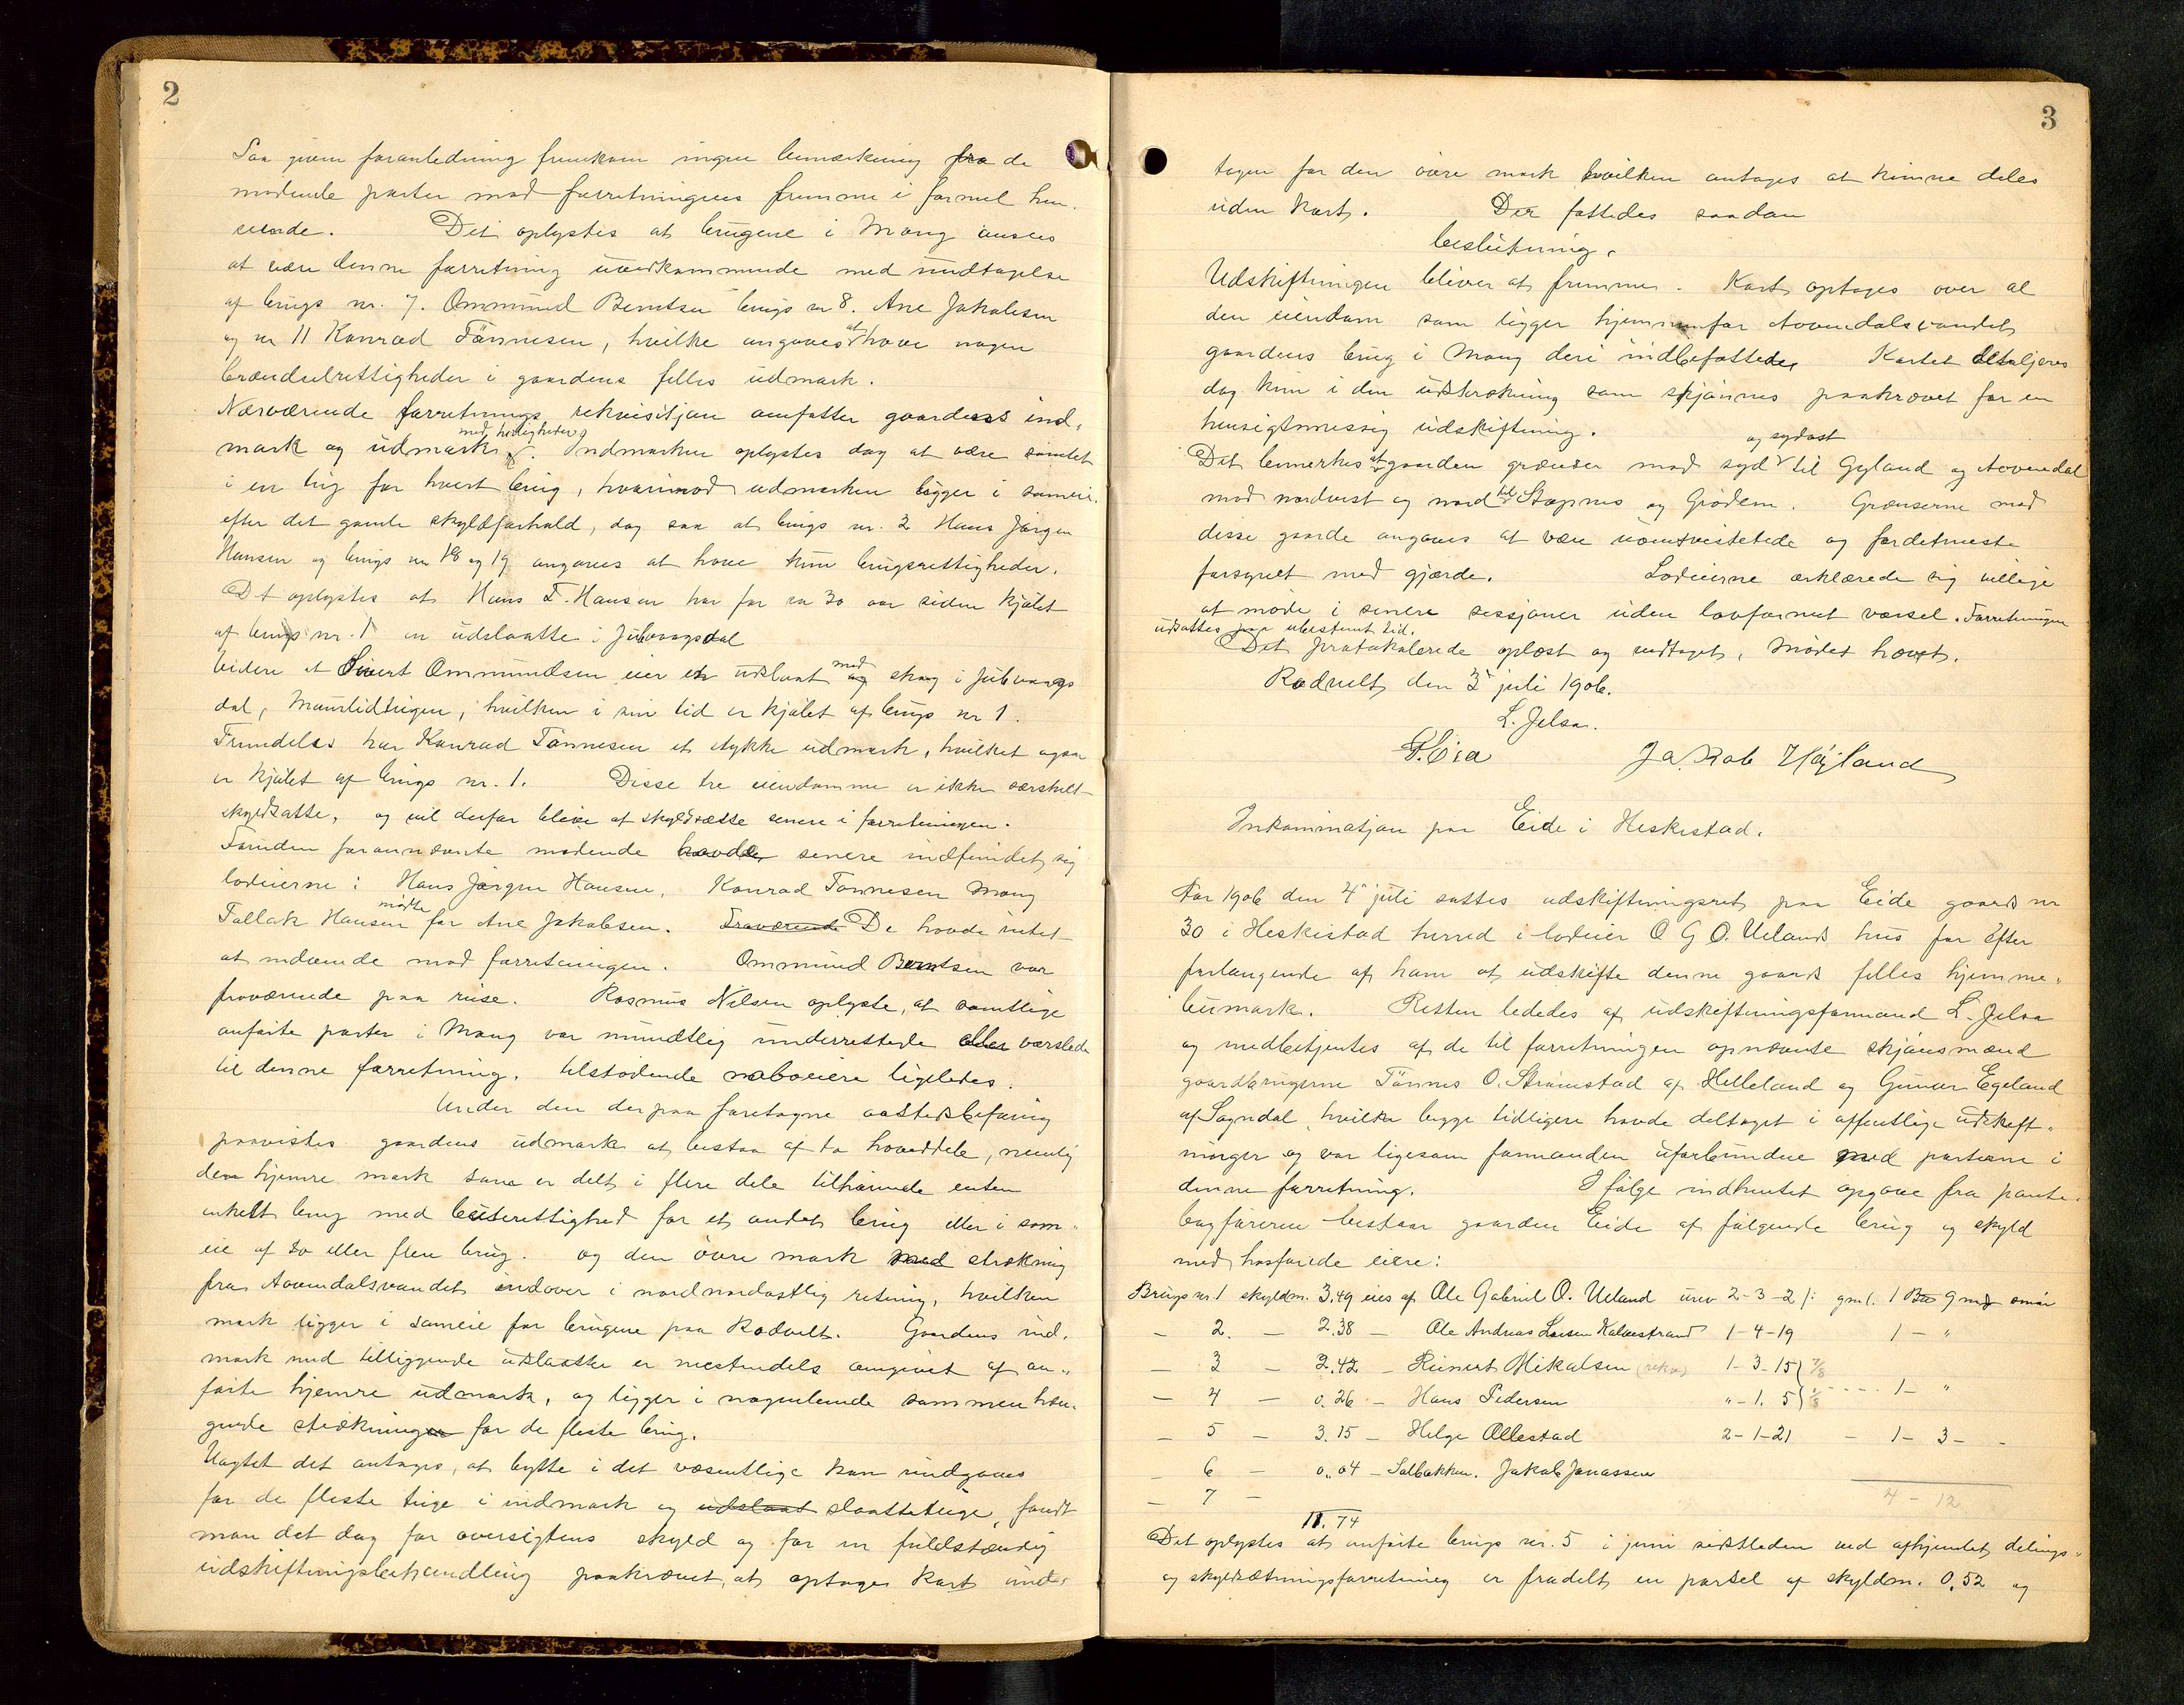 2
Saa given foranledning fremkom ingen bemærkning fra de
mødende parter mod forretningens fremme i formel hen-
seende. Det oplystes at brugene i Mong ansees
at være denne forretning uvedkommende med undtagelse
af brugs nr. 7. Ommund Berntsen brugs nr 8. Ane Jakobsen
og nr 11 Konrad Tønnesen, hvilke angaves at have nogen
brændselrettigheder i gaardens felles udmark.
Nærværende forretnings rekvisitjon omfatter gaardens ind-
mark og udmark med herligheder. Indmarken oplystes dog at være samlet
i en teig for hvert brug, hvorimod udmarken ligger i sameie
efter det gamle skyldforhold, dog saa at brugs nr. 2 Hans Jørgen
Hansen og brugs nr 18 og 19 angaves at have kun brugsrettigheder.
Det oplystes at Hans T. Hansen har for ca 30 aar siden kjøbt
af brugs nr. 1 en udslaatte i Julvaagsdal
Videre at Sivert Ommundsen eier en udslaat med skog i Julvaags
dal, Maurlidteigen, hvilken i sin tid er kjøbt af brugs nr 1.
Fremdeles har Konrad Tønnesen et stykke udmark, hvilket ogsaa
er kjøbt af brugs nr. 1. Disse tre eiendomme er ikke særskilt
skyldsatte, og vil derfor blive at skyldsætte senere i forretningen.
Foruden forannævnte mødende havde senere indfundet sig
lodeierne: Hans Jørgen Hansen, Konrad Tønnesen Mong
Tallak Hansen mødte for Ane Jakobsen. Fraværende De havde intet
at indvende mod forretningen. Ommund Berntsen var
fraværende paa reise. Rasmus Nilsen oplyste, at samtlige
anførte parter i Mong var mundtlig underrettede eller varslede
til denne forretning, tilstødende naboeiere ligeledes.
Under den derpaa foretagne aastedsbefaring
paavistes gaardens udmark at bestaa af to hoveddele, nemlig
den hjemre mark som er delt i flere dele tilhørende enten
enkelt brug med beiterettighed for et andet brug eller i sam-
eie af to eller flere brug. og den øvre mark med strækning
fra Aavendalsvandet indover i nordnordøstlig retning, hvilken
mark ligger i sameie for brugene paa Rodvelt. Gaardens ind-
mark med tilliggende udslaatter er mestendels omgivet af an-
førte hjemre udmark, og ligger i nogenlunde sammenhæn-
gende strækninger for de fleste brug.
Uagtet det antages, at bytte i det væsentlige kan undgaaes
for de fleste teige i indmark og udslaat slaatteteige, fandt
man det dog for oversigtens skyld og for en fuldstændig
udskiftningsbehandling paakrævet, at optage kart und-
3
tagen for den øvre mark hvilken antages at kunne deles
uden kart. Der fattedes saadan
beslutning.
Udskiftningen bliver at fremme. Kart optages over al
den eiendom som ligger hjemmenfor Aavendalsvandet
gaardens brug i Mong deri indbefattede. Kartet detaljeres
dog kun i den udstrækning som skjønnes paakrævet for en
hensigtsmessig udskiftning.
Det bemerkes at gaarden grænser mod syd og sydøst til Gyland og Aavendal
mod nordvest og nord til Stapnes og Grødem. Grænserne mod
disse gaarde angaves at være uomtvistede og fordetmeste
forsynet med gjærde. Lodeierne erklærede sig villige
at møde i senere sessjoner uden lovformet varsel. Forretningen
udsattes paa ubestemt tid.
Det protokolerede oplæst og vedtaget, Mødet hævet.
Rodvelt den 3 juli 1906.
L. Jelsa.
P. Eia Jakob Høiland
Inkaminatjon paa Eide i Heskestad.
Aar 1906 den 4 juli sattes udskiftningsret paa Eide gaards nr
30 i Heskestad herred i lodeier O G O. Uelands hus for efter
forlangende af ham at udskifte denne gaards felles hjemme-
beimark. Retten lededes af udskiftningsformand L. Jelsa
og medbetjentes af de til forretningen opnævnte skjønsmænd
gaardbrugerne Tønnes O. Strømstad af Helleland og Gunar Egeland
af Sogndal, hvilke begge tidligere havde deltaget i offentlige udskift-
ninger og var ligesom formanden uforbundne med parterne i
denne forretning. I følge indhentet opgave fra pante-
bogføreren bestaar gaarden Eide af følgende brug og skyld
med hosførte eiere:
Brugs nr 1 skyldm. 3.49 eies af Ole Gabriel O. Ueland urev 2-3-2 /: gml. 1 9 md smør
— 2. — 2.38 — Ole Andreas Larsen Kalvestrand 1-4-19 1 — "
— 3 — 2.42 — Reinert Mikalsen (rekv.) 1-3-15 7/8
— 4 — 0.26 — Hans Pedersen "-1. 5 1/8 1— "
— 5 — 3.15 — Helge Ollestad 2-1-21 — 1— 3—
— 6 — 0.04 — Salbakken. Jakob Jonassen
— 7 — 4 — 12
11.74
Det oplystes at anførte brugs nr. 5 i juni sidstleden ved afhjemlet delings-
og skyldsætningsforretning er fradelt en parsel af skyldm. 0,52 og